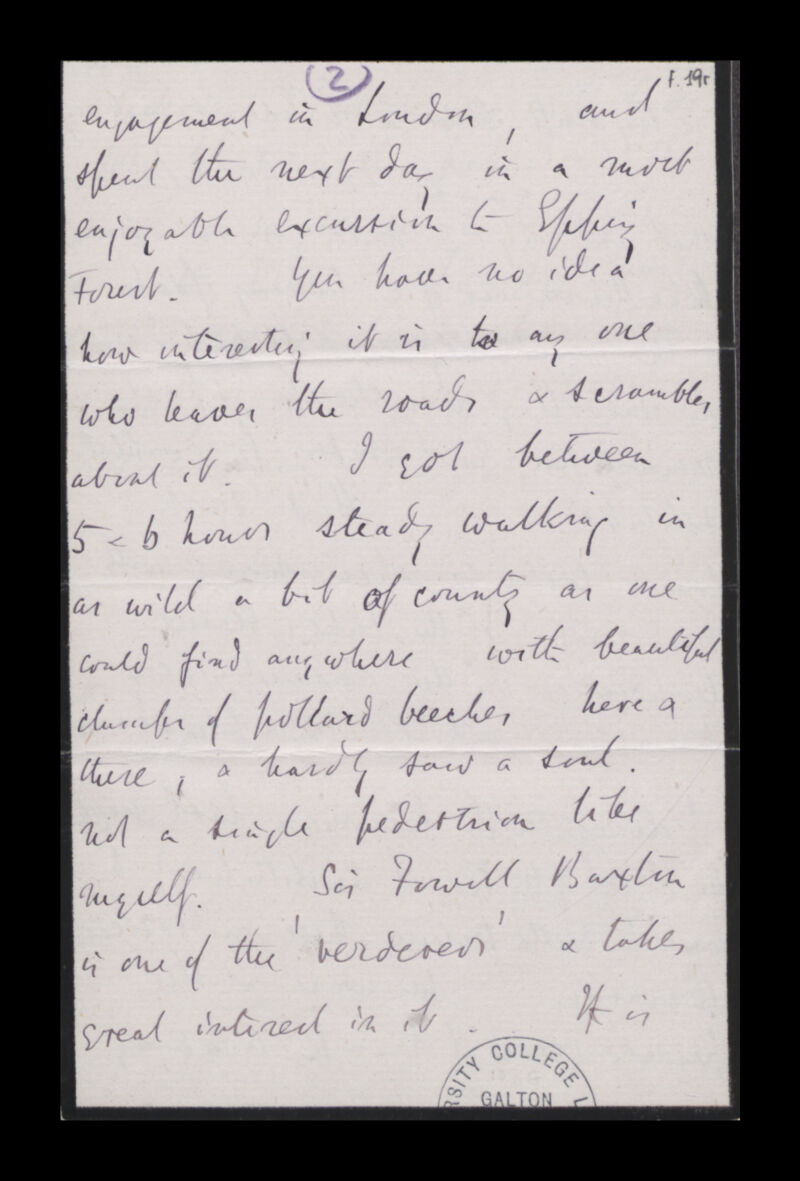 (2)
f. 19r
engagement in London, and
spent the next day in a most
enjoyable excursion to Epping
Forest. You have no idea
how interesting it is to any one
who leaves the roads & scrambles
about it. I got between
5 & 6 hours steady walking in
as wild a bit of country as one
could find anywhere with beautiful
clumps of pollard beeches here &
there, & hardly saw a soul.
not a single pedestrian like
myself. Sir Fowell Buxton
is one of the 'verderers' & takes
great interest in it. It is
RSITY COLLEGE L
GALTON